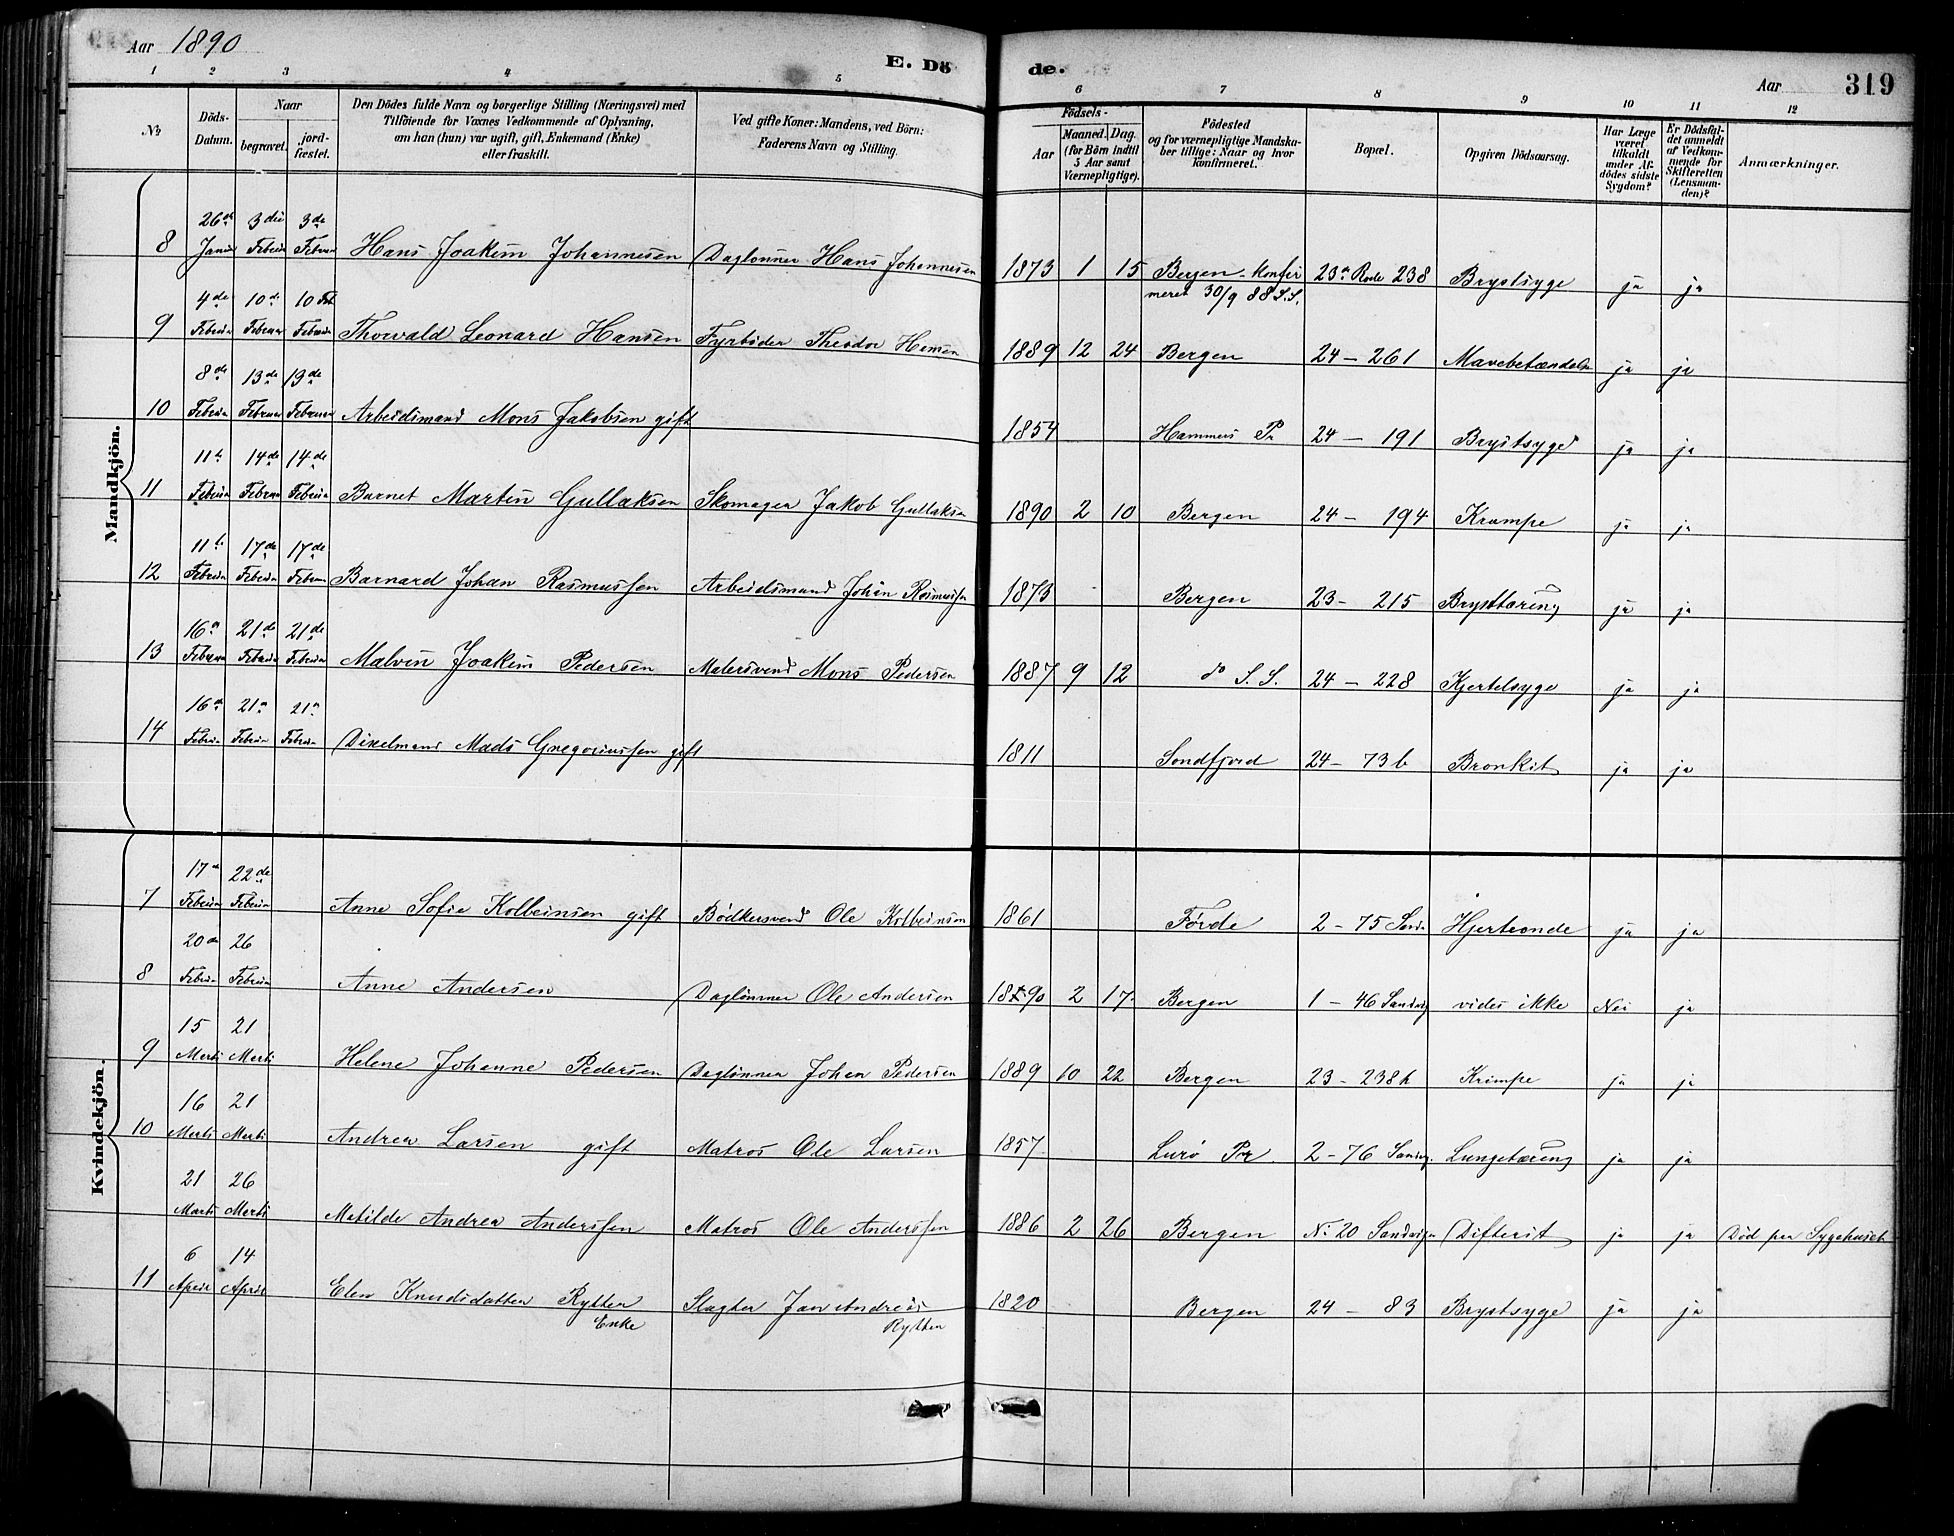 Aar 1890
E. Dö
de.
Aar
319
1 2 3 4 5 6 7 8 9 10 11 12
№
Döds-Datum.
Naar
begravet.
jord-fæstet.
Den Dödes fulde Navn og borgerlige Stilling (Næringsvei) med
Tilföiende for Voxnes Vedkommende af Oplysning,
om han (hun) var ugift, gift, Enkemand (Enke)
eller fraskilt.
Ved gifte Koner: Mandens, ved Börn:
Faderens Navn og Stilling.
Födsels-
Aar
Maaned. Dag.
(for Börn indtil
5 Aar samt
Værnepligtige).
Födested
og for værnepligtige Mandskaber tillige: Naar og hvor konfirmeret.
Bopæl.
Opgiven Dödsaarsag.
Har Læge
været
tilkaldt
under Afdödes sidste
Sygdom?
Er Dödsfaldet anmeldt
af Vedkommende for
Skifteretten
(Lensmanden)?
Anmærkninger.
Mandkjön.
26de 3die 3die
8 Januar Februar Februar Hans Joakim Johannesen Daglønner Hans Johannesen 1873 1 15 Bergen Konfir 23de Rode 238 Brystsyge ja ja
meret 30/9 88 S.S.
4de 10de 10 Feb
9 Februar Februar Februar Thorvald Leonard Hansen Fyrbøder Theodor Hansen 1889 12 24 Bergen 24 - 261 Mavebetændelse ja ja
8de 13de 19de
10 Februar Februar Februar Arbeidsmand Mons Jakobsen gift 1854 Hammers Pr 24 - 191 Brystsyge ja ja
11te 14de 14de
11 Februar Februar Februar Barnet Martin Gullaksen Skomager Jakob Gullaksen 1890 2 10 Bergen 24 - 194 Krampe ja ja
11te 17de 17de
12 Februar Februar Februar Barnard Johan Rasmussen Arbeidsmand Johan Rasmussen 1873 Bergen 23 - 215 Brysttæring ja ja
16de 21de 21de
13 Februar Februar Februar Malvin Joakim Pedersen Malersvend Mons Pedersen 1887 9 12 do S. S. 24 - 228 Kjertelsyge ja ja
16de 21de 21de
14 Februar Februar Februar Dixelmand Mads Gregoriussen gift 1811 Søndfjord 24 - 73b Bronkit ja ja
Kvindekjön.
17de 22de
7 Februar Februar Anne Sofie Kolbeinsen gift Bødkersvend Ole Kolbeinsen 1861 Førde 2 - 75 Sandv Hjerteonde ja ja
20de 26
8 Februar Februar Anne Andersen Daglønner Ole Andersen 1890 2 17 Bergen 1 - 46 Sandvig vides ikke Nei ja
15 21
9 Marts Marts Helene Johanne Pedersen Daglønner Johan Pedersen 1889 10 22 Bergen 23 - 238b Krampe ja ja
16 21
10 Marts Marts Andrea Larsen gift Matros Ole Larsen 1857 Lurø Pr 2 - 76 Sandvig. Lungetæring ja ja
21 26
Marts Marts Matilde Andrea Anderssen Matros Ole Anderssen 1886 2 26 Bergen No 20 Sandvigen Difterit ja ja Død paa Sygehuset
6 14
11 April April Elen Knudsdatter Rytter Slagter Jan Andreas 1820 Bergen 24 - 83 Brystsyge ja ja
Enke Rytter